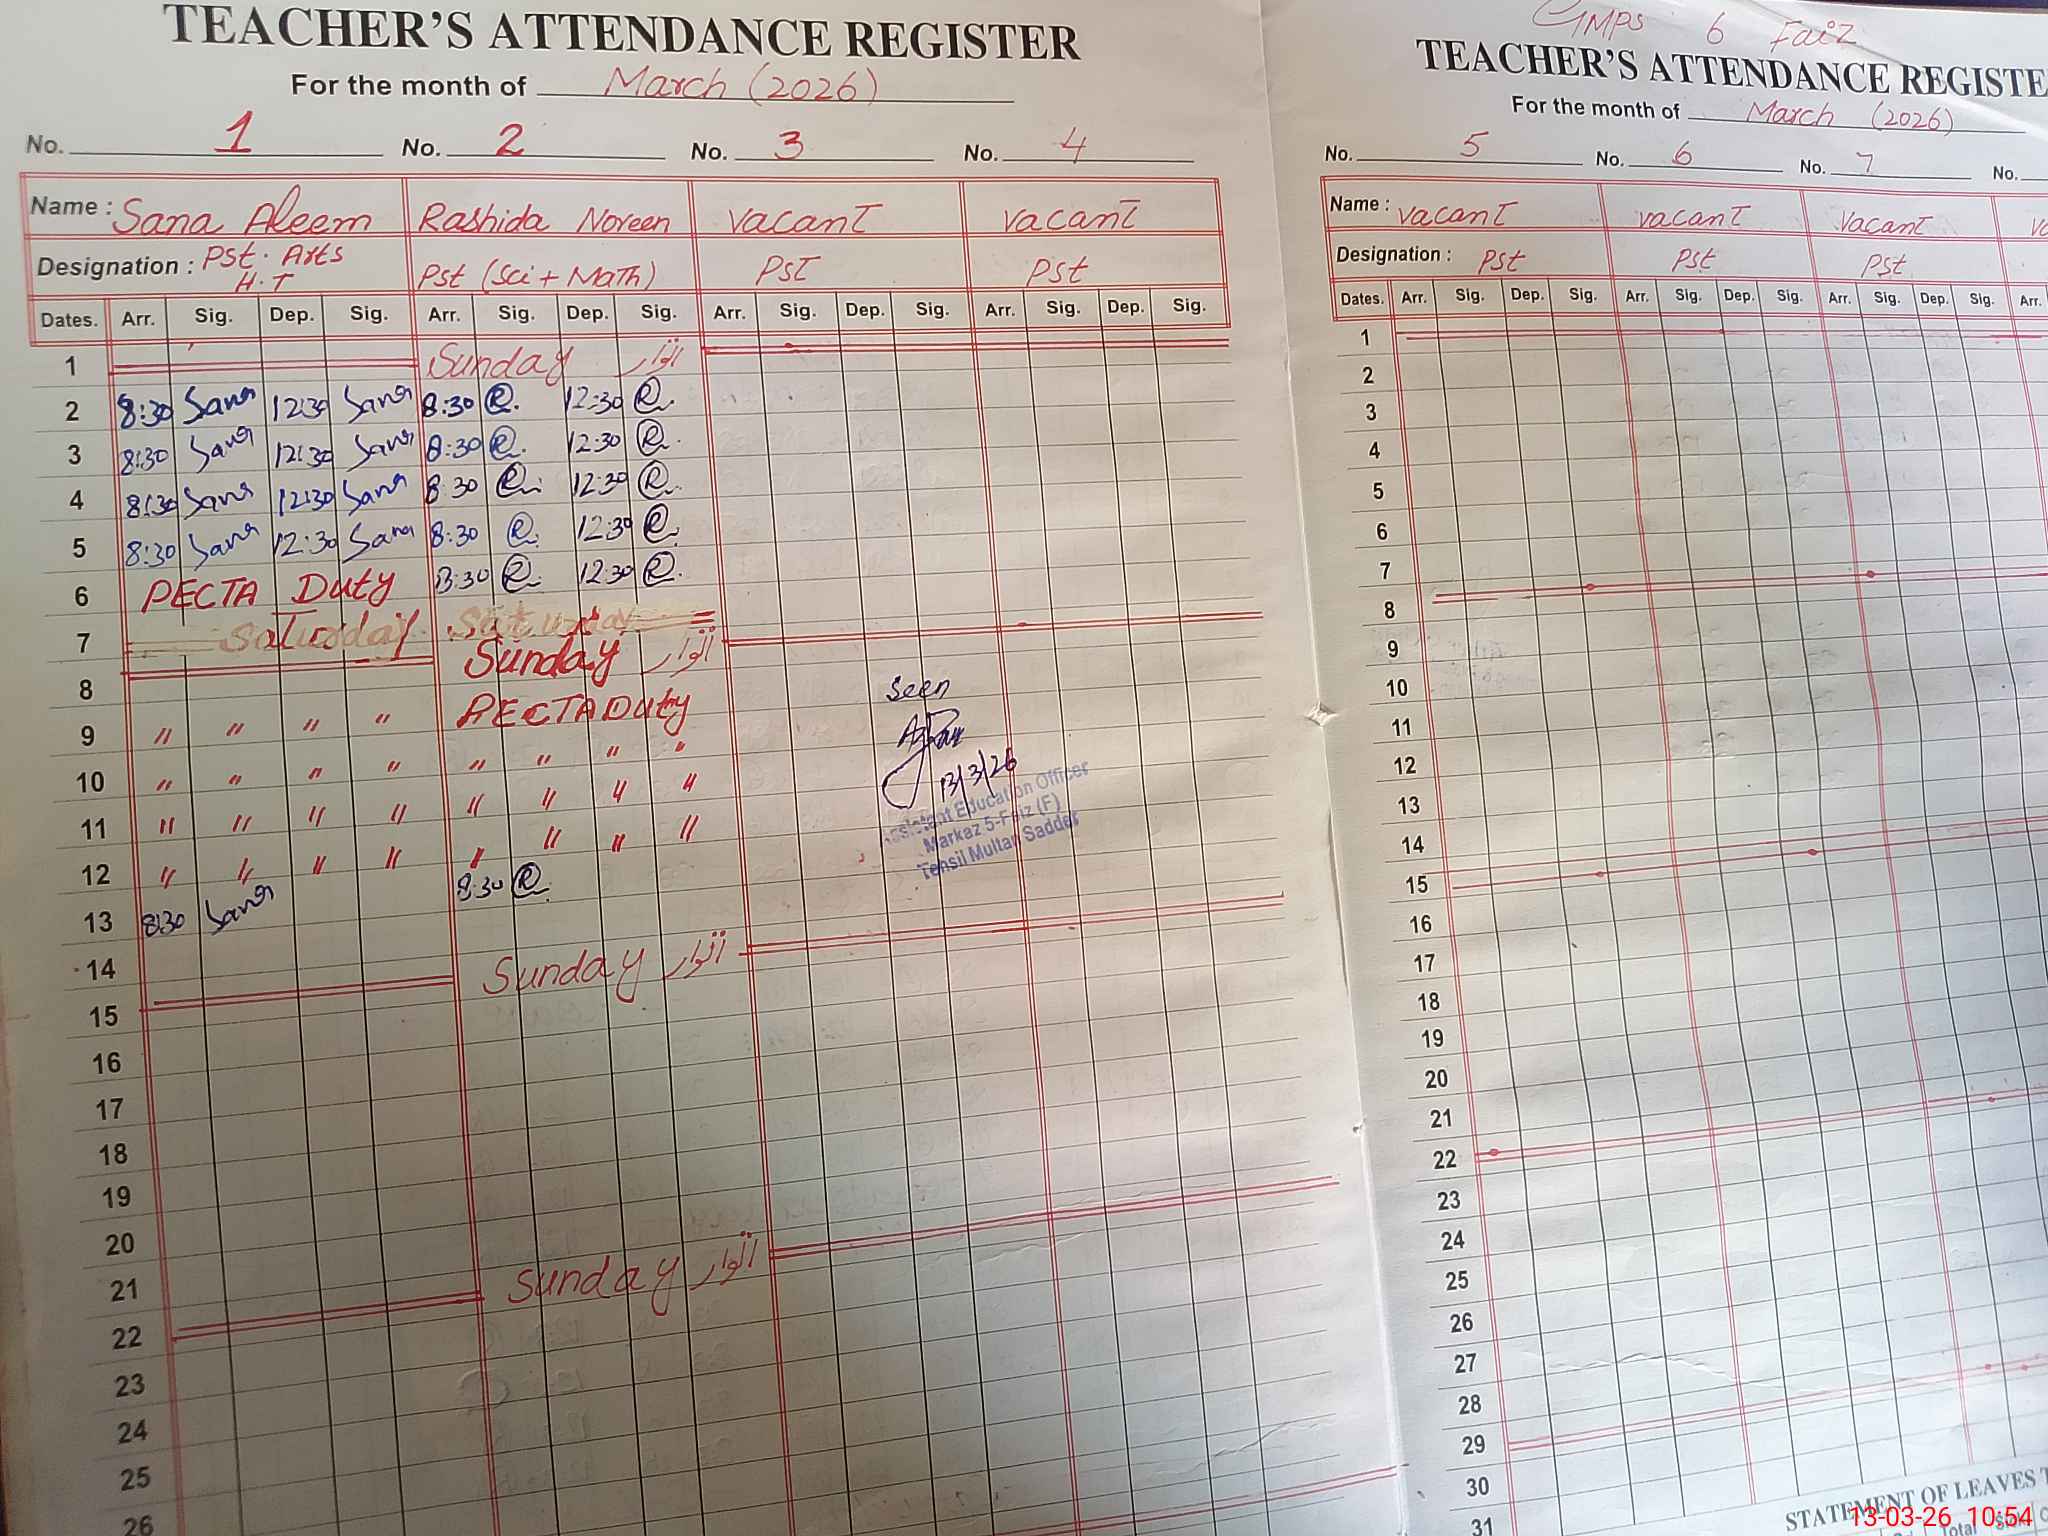 TEACHER'S ATTENDANCE REGISTER
For the month of March (2026)
No. 1 No. 2 No. 3 No. 4
Name : Sana Aleem Rashida Noreen vacant vacant
Designation : Pst. Arts H.T Pst (Sci + Math) PST Pst
Dates. Arr. Sig. Dep. Sig. Arr. Sig. Dep. Sig. Arr. Sig. Dep. Sig. Arr. Sig. Dep. Sig.
1 Sunday اتوار
2 8:30 Sana 12:30 Sana 8:30 R. 12:30 R.
3 8:30 Sana 12:30 Sana 8:30 R. 12:30 R.
4 8:30 Sana 12:30 Sana 8:30 R. 12:30 R.
5 8:30 Sana 12:30 Sana 8:30 R. 12:30 R.
6 PECTA Duty 8:30 R. 12:30 R.
7 Saturday Saturday
8 Sunday اتوار
9 " " " " PECTA Duty
10 " " " " " " " "
11 " " " " " " " "
12 " " " " " " " "
13 8:30 Sana 8:30 R.
14
15 Sunday اتوار
16
17
18
19
20
21
22 Sunday اتوار
23
24
25
26
Seen
13/3/26
Assistant Education Officer
Markaz 5-Faiz (F)
Tehsil Multan Saddar
GMPS 6 Faiz
TEACHER'S ATTENDANCE REGISTE
For the month of March (2026)
No. 5 No. 6 No. 7 No.
Name : vacant vacant vacant
Designation : Pst Pst Pst
Dates. Arr. Sig. Dep. Sig. Arr. Sig. Dep. Sig. Arr. Sig. Dep. Sig. Arr.
1
2
3
4
5
6
7
8
9
10
11
12
13
14
15
16
17
18
19
20
21
22
23
24
25
26
27
28
29
30
31
STATEMENT OF LEAVES
Total
13-03-26 10:54